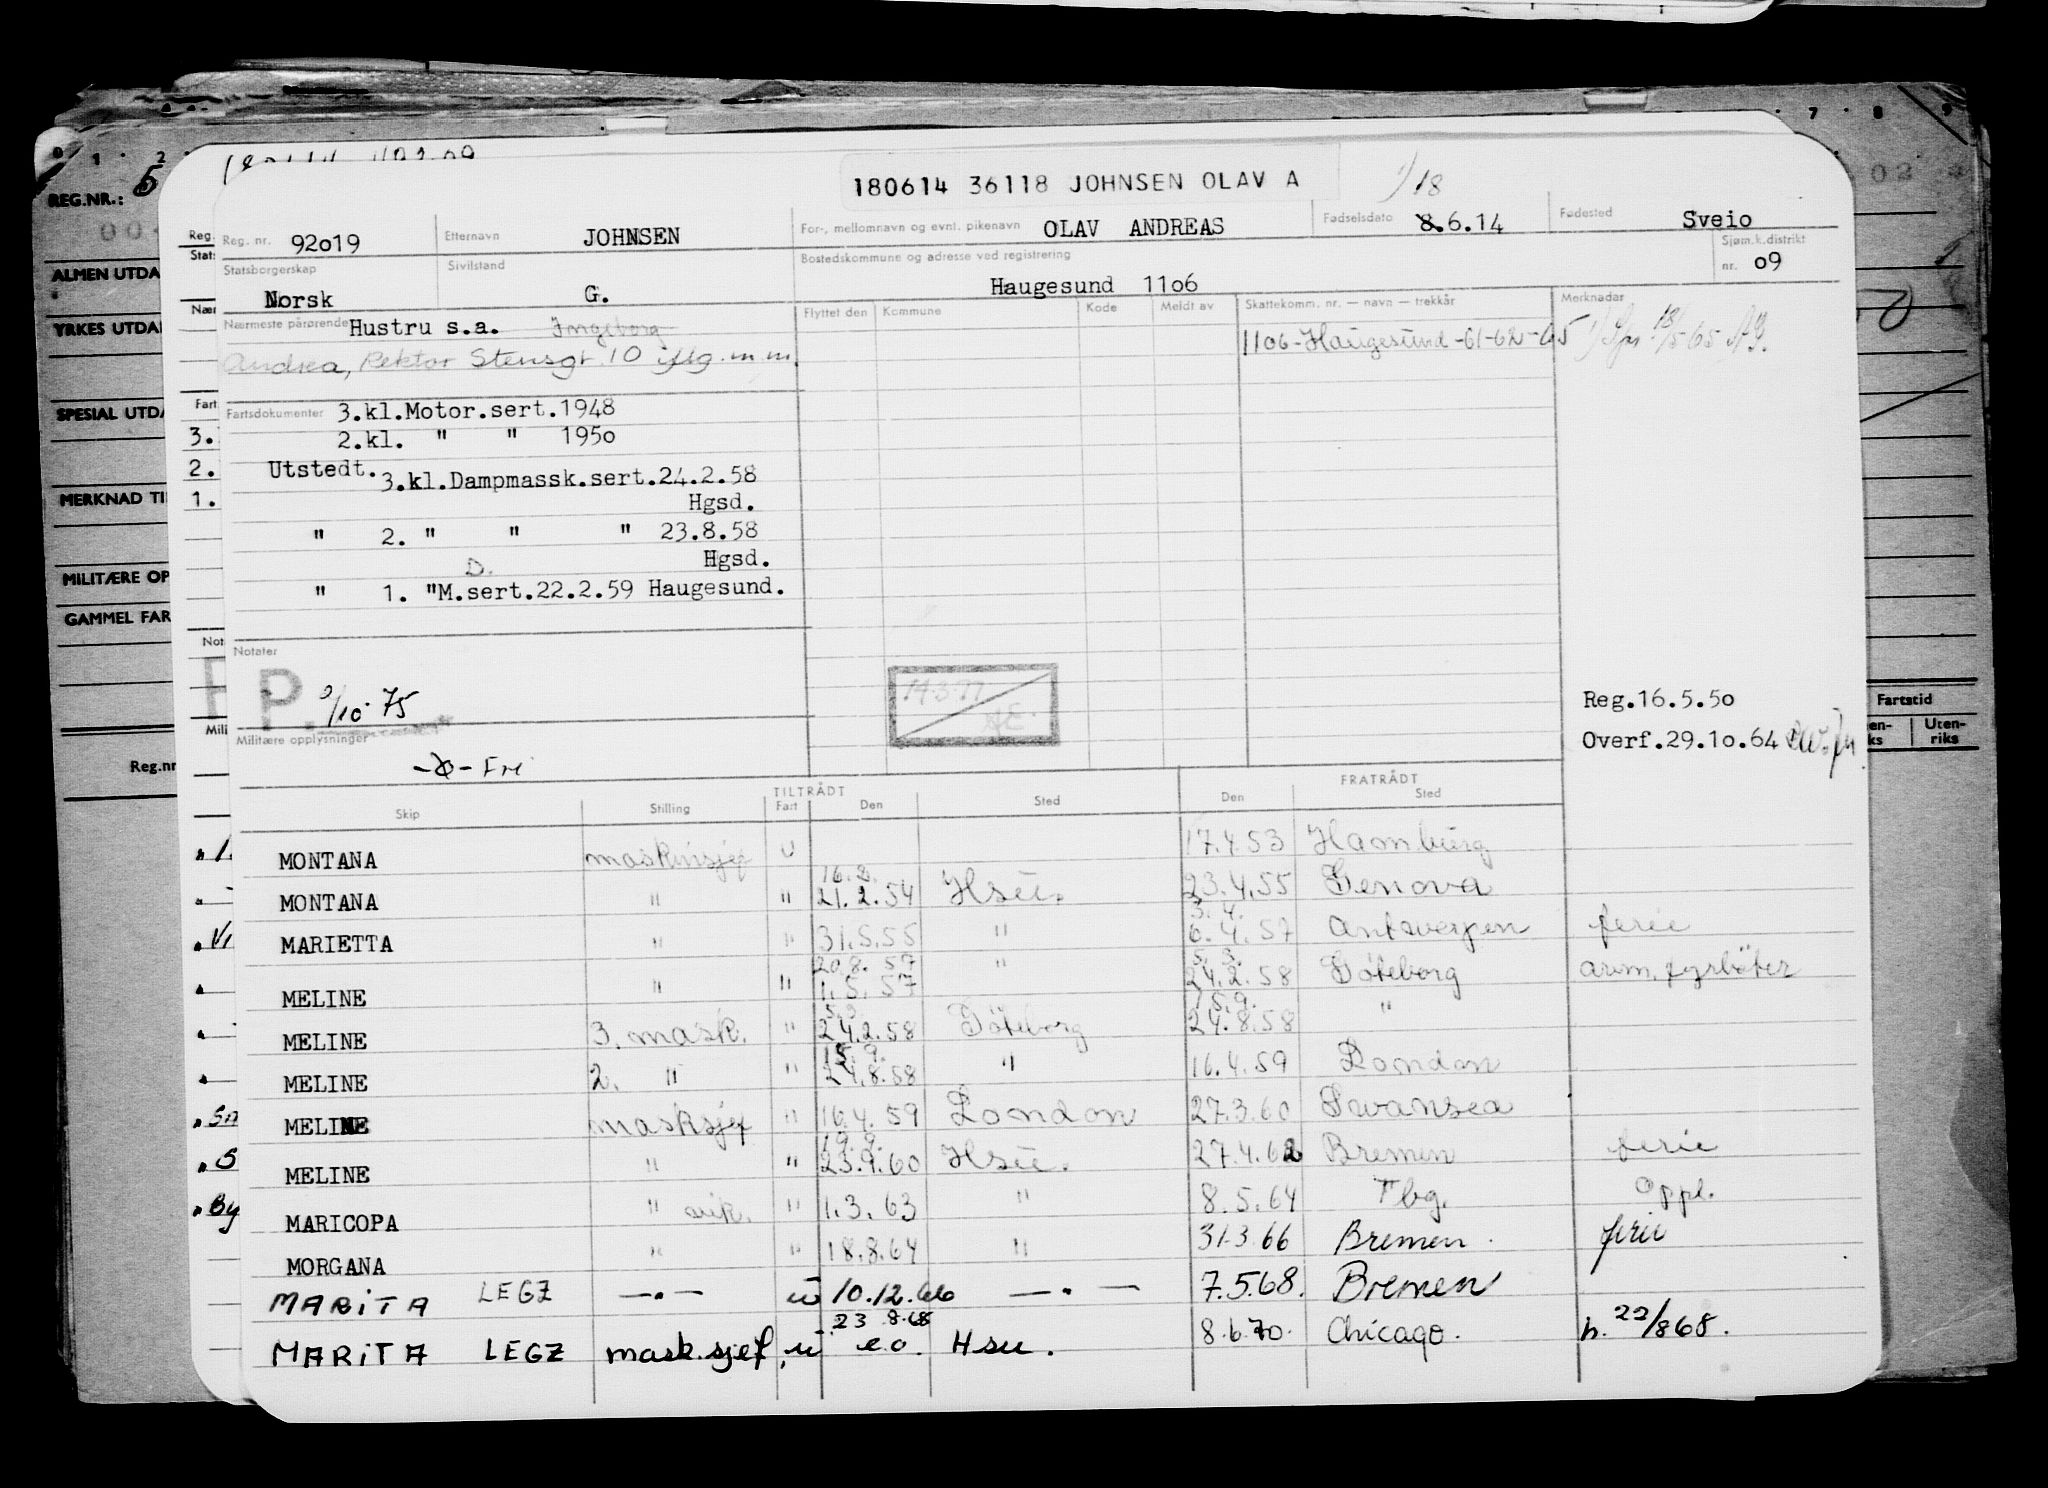 180614 36118 JOHNSEN OLAV A
1) 18
Reg. nr. 92o19
Etternavn JOHNSEN
For-, mellomnavn og evnt. pikenavn OLAV ANDREAS
Fødselsdato 8.6.14
Fødested Sveio
Statsborgerskap Norsk
Sivilstand G.
Bostedskommune og adresse ved registrering Haugesund 11o6
Sjøm.k.distrikt nr. o9
Nærmeste pårørende Hustru s.a. Ingeborg
Andrea, Rektor Stensgt. 10
Flyttet den Kommune Kode Meldt av
Skattekomm. nr. — navn — trekkår
1106-Haugesund-61-62-65
Merknader
Fartsdokumenter 3.kl.Motor.sert.1948
2.kl. " " 195o
Utstedt. 3.kl.Dampmassk.sert.24.2.58
Hgsd.
" 2. " " " 23.8.58
D. Hgsd.
" 1. "M.sert.22.2.59 Haugesund.
Notater
P. 9/10-75
14.3.77
Reg.16.5.5o
Overf.29.1o.64
Militære opplysninger
Fri
TILTRÅDT FRATRÅDT
Skip Stilling Fart Den Sted Den Sted
MONTANA maskinsjef U 17.4.53 Hamburg
MONTANA " " 16.2. 21.2.54 Hsu. 23.4.55 Genova
MARIETTA " " 31.5.55 " 3.4. 6.4.57 Antwerpen ferie
MELINE " " 20.8.57 1.5.57 " 5.3. 24.2.58 Göteborg avm. fyrbøter
MELINE 3. mask. " 5.3. 24.2.58 Göteborg 15.9. 24.8.58 "
MELINE 2. " " 15.9. 24.8.58 " 16.4.59 London
MELINE masksjef " 16.4.59 London 27.3.60 Swansea
MELINE " " 19.9. 23.9.60 Hsu. 27.4.62 Bremen ferie
MARICOPA " vik. " 1.3.63 " 8.5.64 Tbg. Oppl.
MORGANA " " 18.8.64 " 31.3.66 Bremen. ferie
MARITA LEGZ —.— u 10.12.66 —.— 7.5.68. Bremen
MARITA LEGZ mask.sjef, u 23 8.68 e.o. Hsu. 8.6.70. Chicago. h. 22/868.
REG.NR.:
ALMEN UTDA
YRKES UTDA
SPESIAL UTDA
MERKNAD TI
MILITÆRE OP
GAMMEL FAR
Reg.nr
Fartstid
Uten-riks